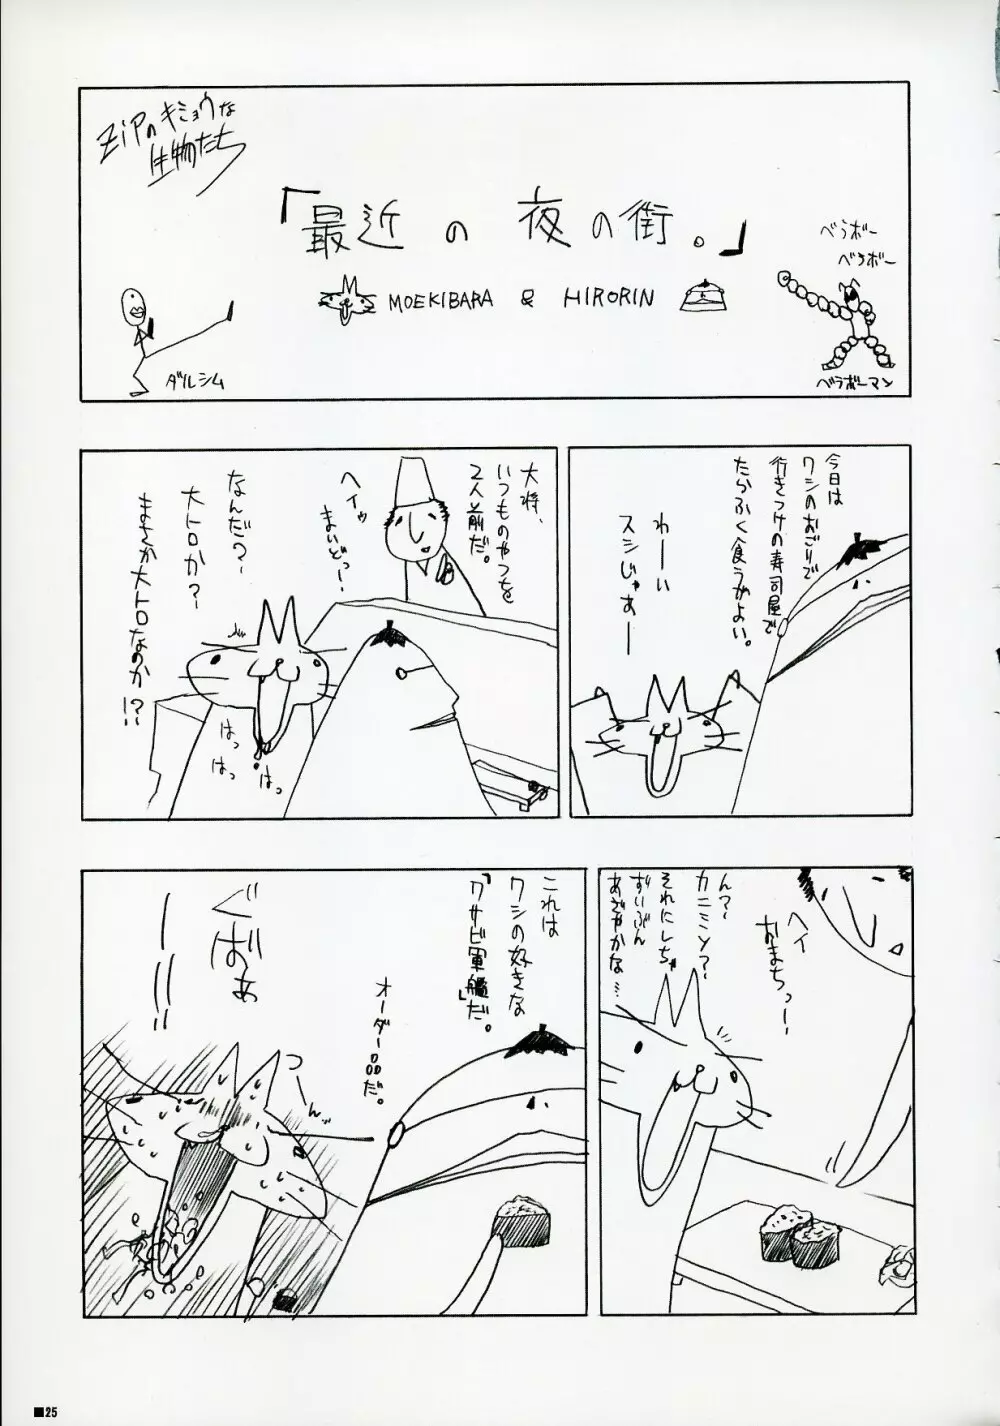 ZiPのキミョウな
生物たち
「最近の夜の街。」
MOEKIBARA & HIRORIN
ダルシム
べらボー
べらボー
べラボーマン
今日は
ワシのおごりで
行きつけの寿司屋で
たらふく食うがよい。
わーい
スシじゃあー
大将、
いつものやつを
2人前だ。
ヘイッ
まいどっ!
なんだ?~
大トロか?~
まさか大トロなのか!?~
はっ
はっ
はっ
ヘイ
おまちっー!
ん?~
カニミソ?~
それにしちゃ
ずいぶん
あざやかな…
これは
ワシの好きな
「ワサビ軍艦」だ。
オーダー品だ。
ぐばぁーーー!!!
つーんッ
■25